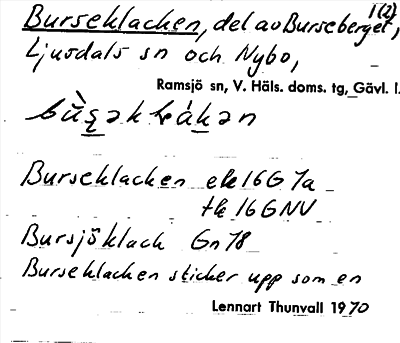 1(2)
Burseklacken, del av Burseberget,
Ljusdals sn och Nybo,
Ramsjö sn, V. Häls. doms. tg, Gävl. l.
Burseklacken ek 16G 7a
tk 16GNV
Bursjöklack Gn 78
Burseklacken sticker upp som en
Lennart Thunvall 1970